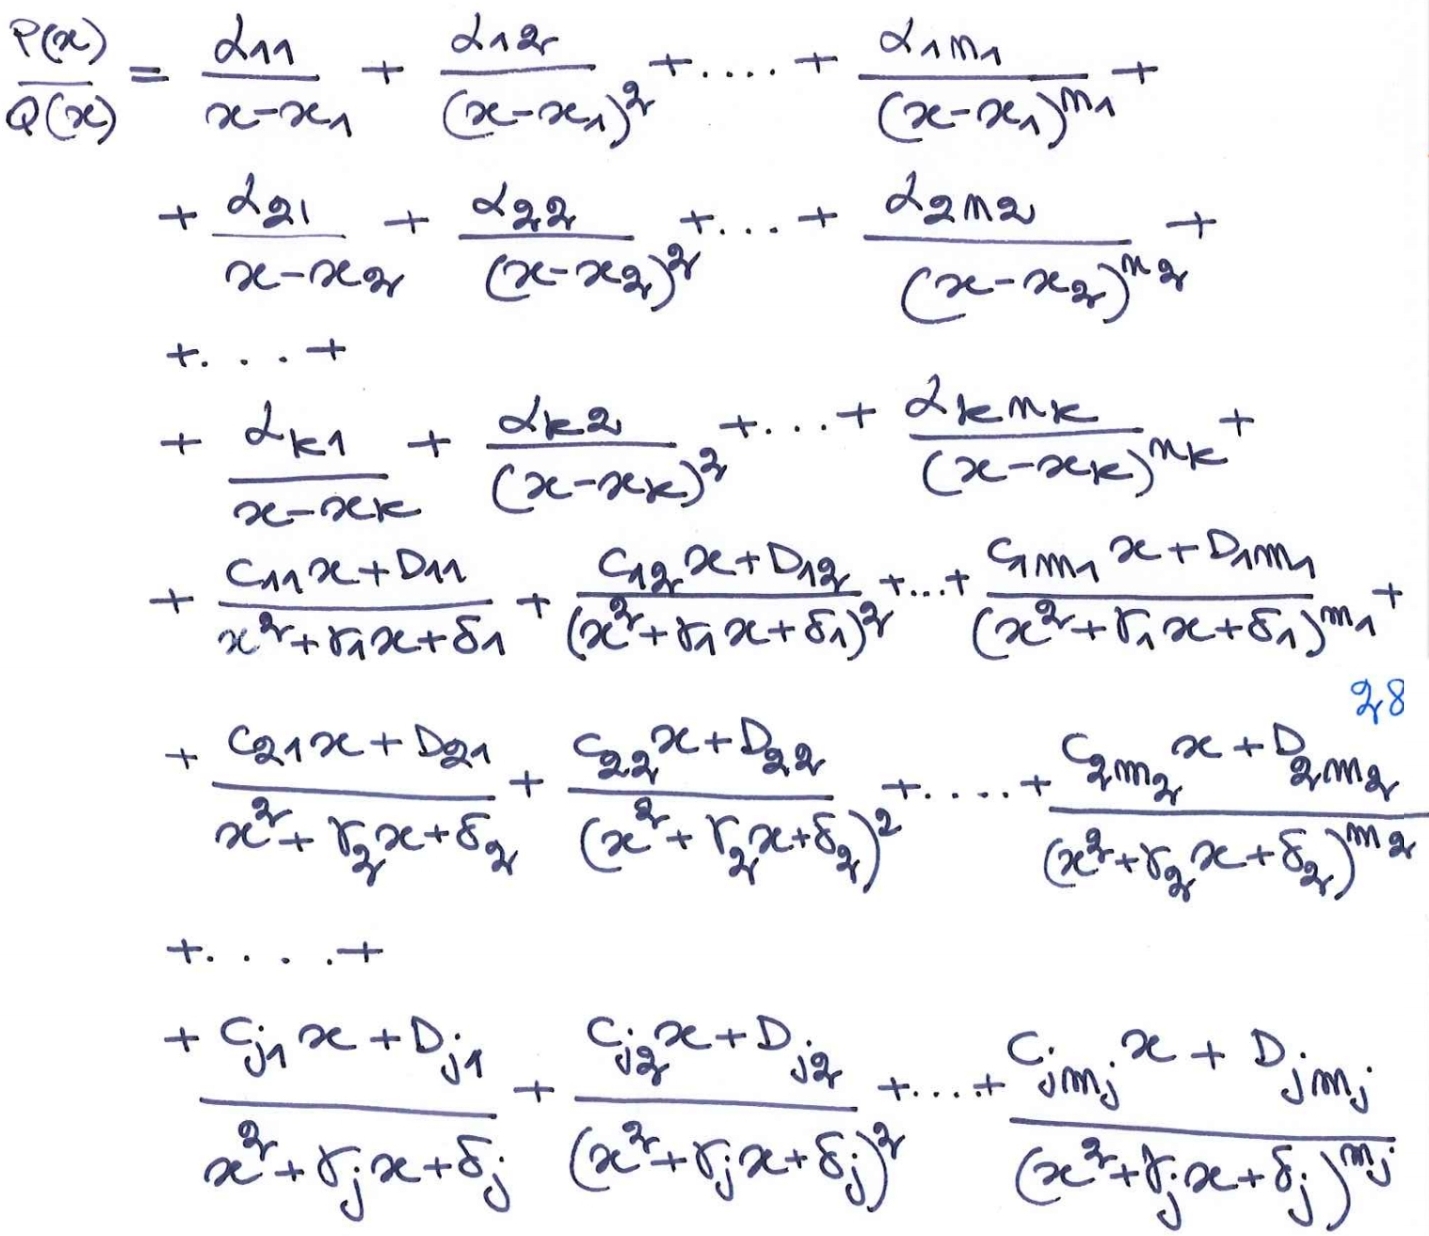 P(x)/Q(x) = α₁₁/(x-x₁) + α₁₂/(x-x₁)² + .... + α₁n₁/(x-x₁)^n₁ +
+ α₂₁/(x-x₂) + α₂₂/(x-x₂)² + ... + α₂n₂/(x-x₂)^n₂ +
+ ... +
+ αk1/(x-xk) + αk2/(x-xk)² + ... + αknk/(x-xk)^nk +
+ (C₁₁x+D₁₁)/(x²+γ₁x+δ₁) + (C₁₂x+D₁₂)/(x²+γ₁x+δ₁)² + ... + (C₁m₁x+D₁m₁)/(x²+γ₁x+δ₁)^m₁ +
28
+ (C₂₁x+D₂₁)/(x²+γ₂x+δ₂) + (C₂₂x+D₂₂)/(x²+γ₂x+δ₂)² + .... + (C₂m₂x+D₂m₂)/(x²+γ₂x+δ₂)^m₂
+ .... +
+ (Cj1x+Dj1)/(x²+γjx+δj) + (Cj2x+Dj2)/(x²+γjx+δj)² + .... + (Cjmjx+Djmj)/(x²+γjx+δj)^mj